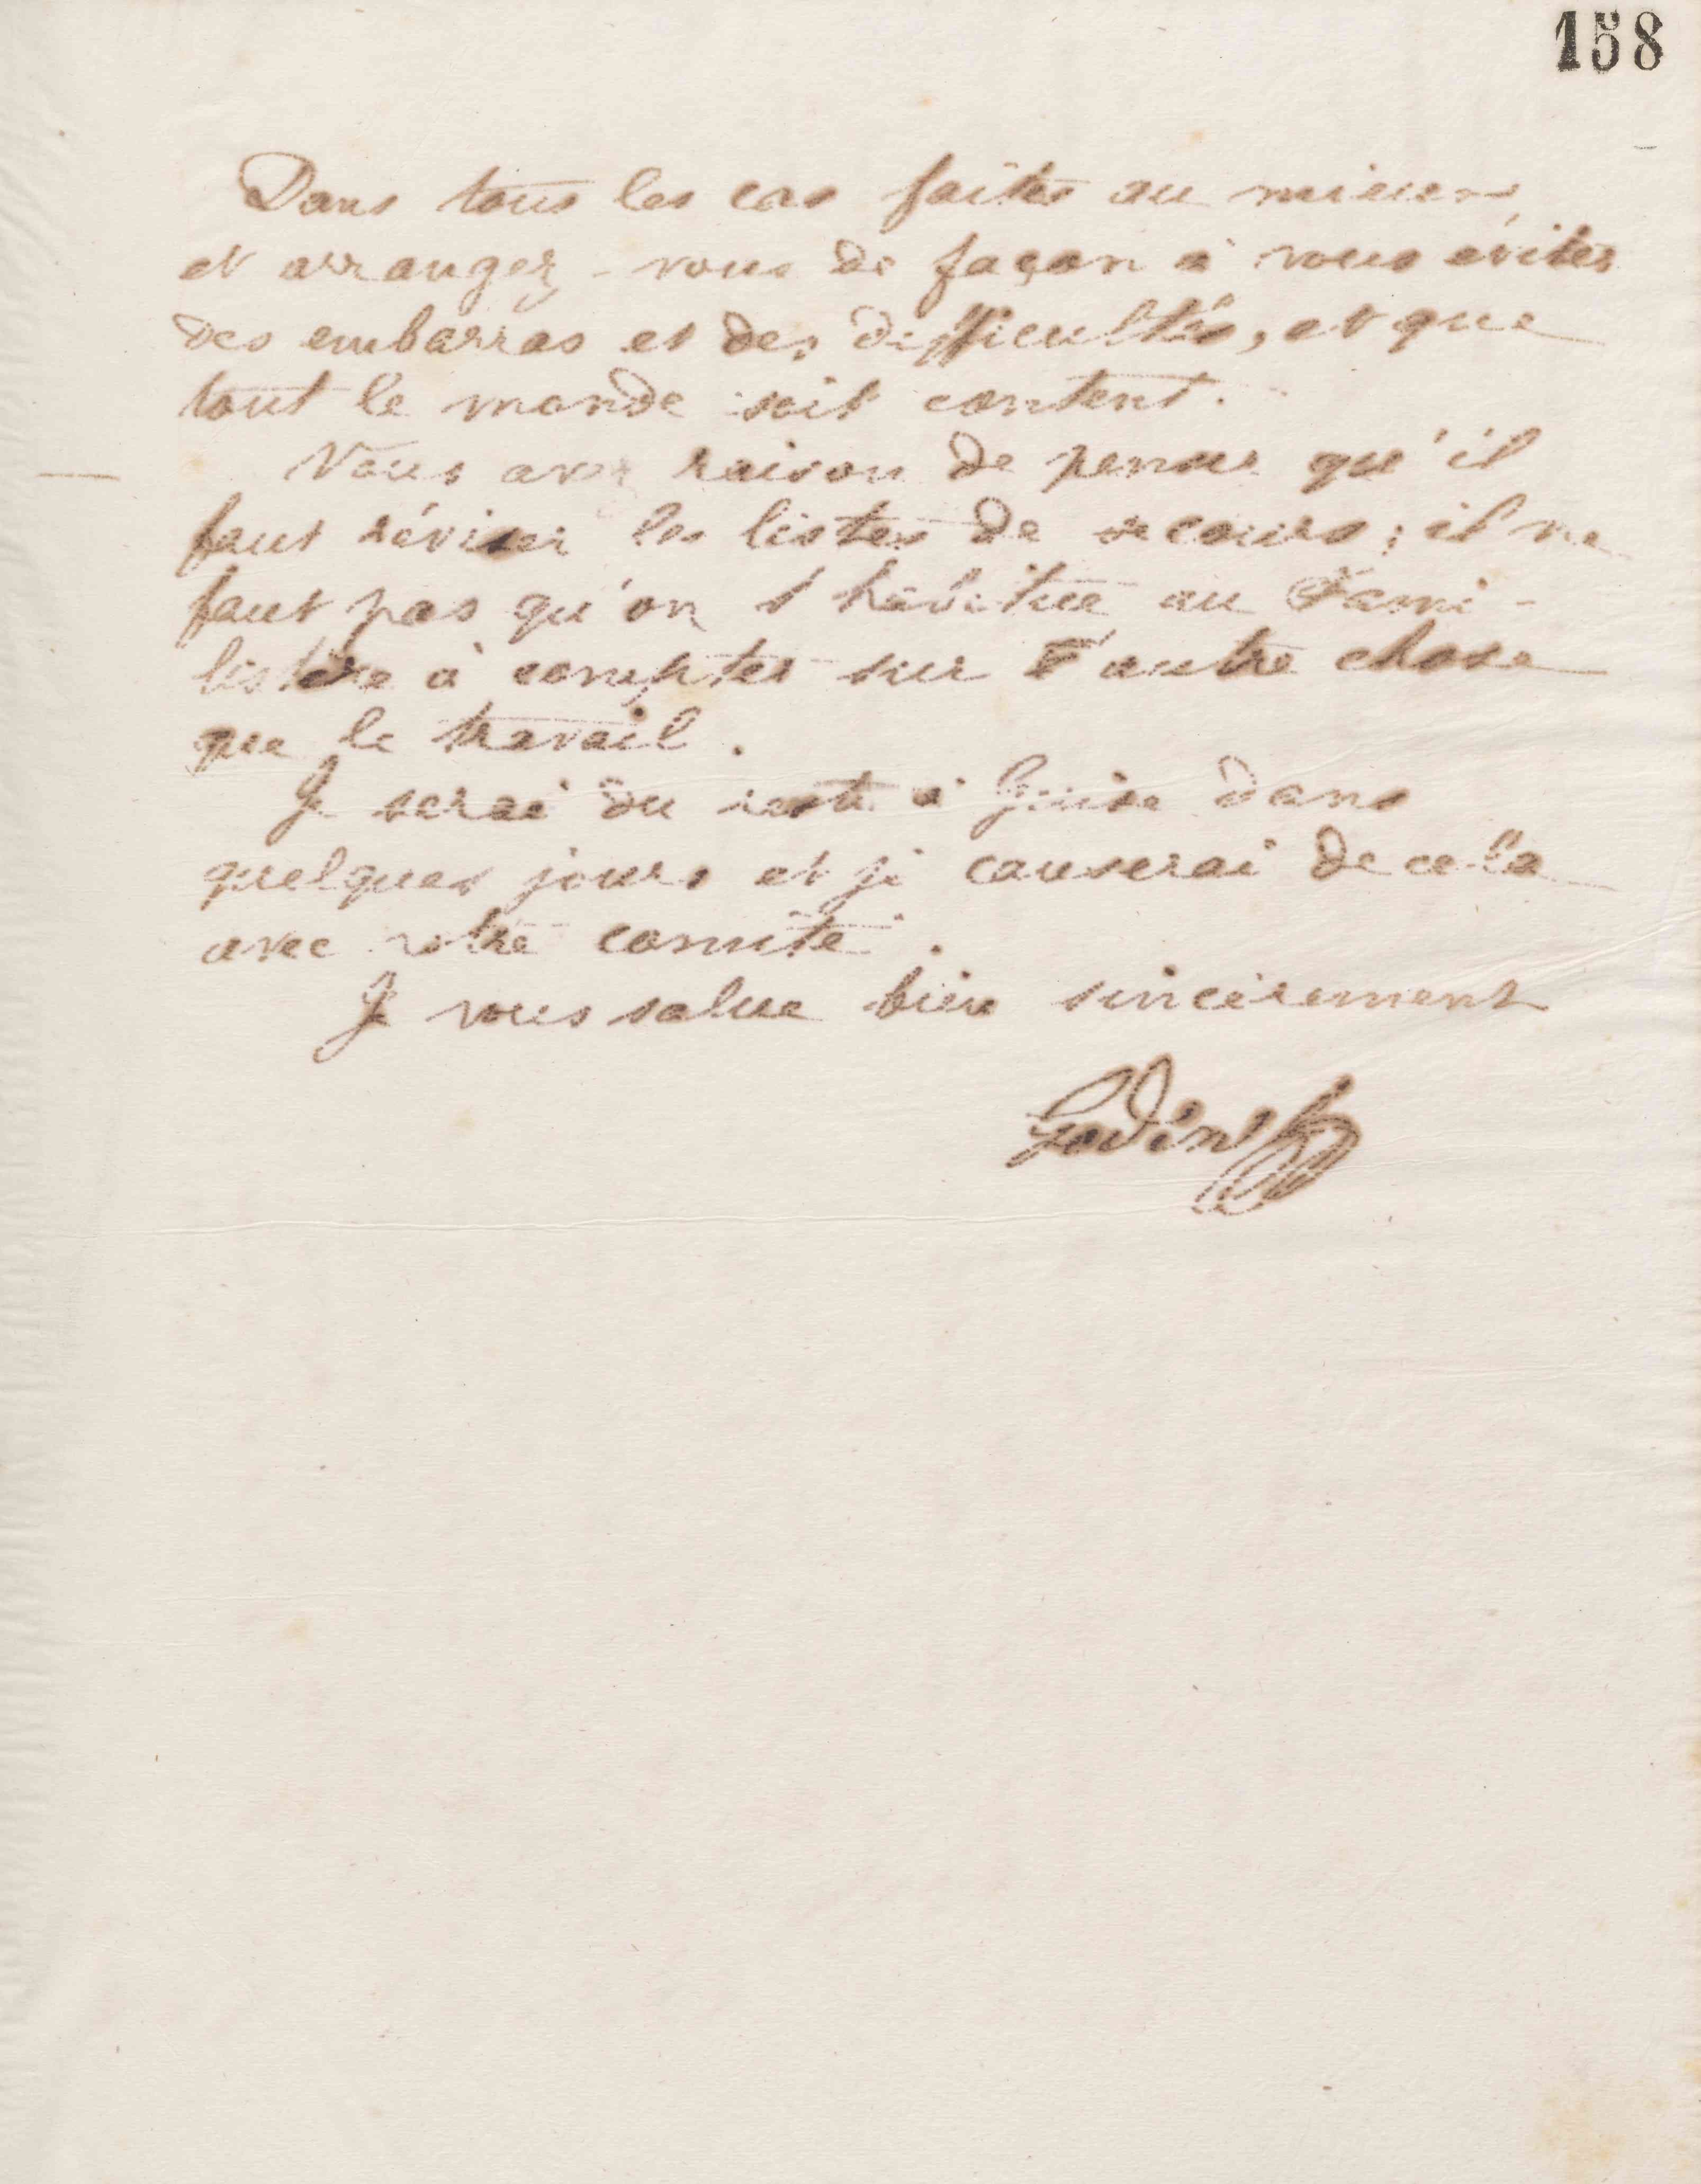 158
Dans tous les cas faites au mieux
et arrangez-vous de façon à vous éviter
des embarras et des difficultés, et que
tout le monde soit content.
Vous avez raison de penser qu'il
faut réviser les listes de secours ; il ne
faut pas qu'on s'habitue au Fami-
listère à compter sur d'autre chose
que le travail.
Je serai du reste à Guise dans
quelques jours et je causerai de cela
avec votre comité.
Je vous salue bien sincèrement
Godin